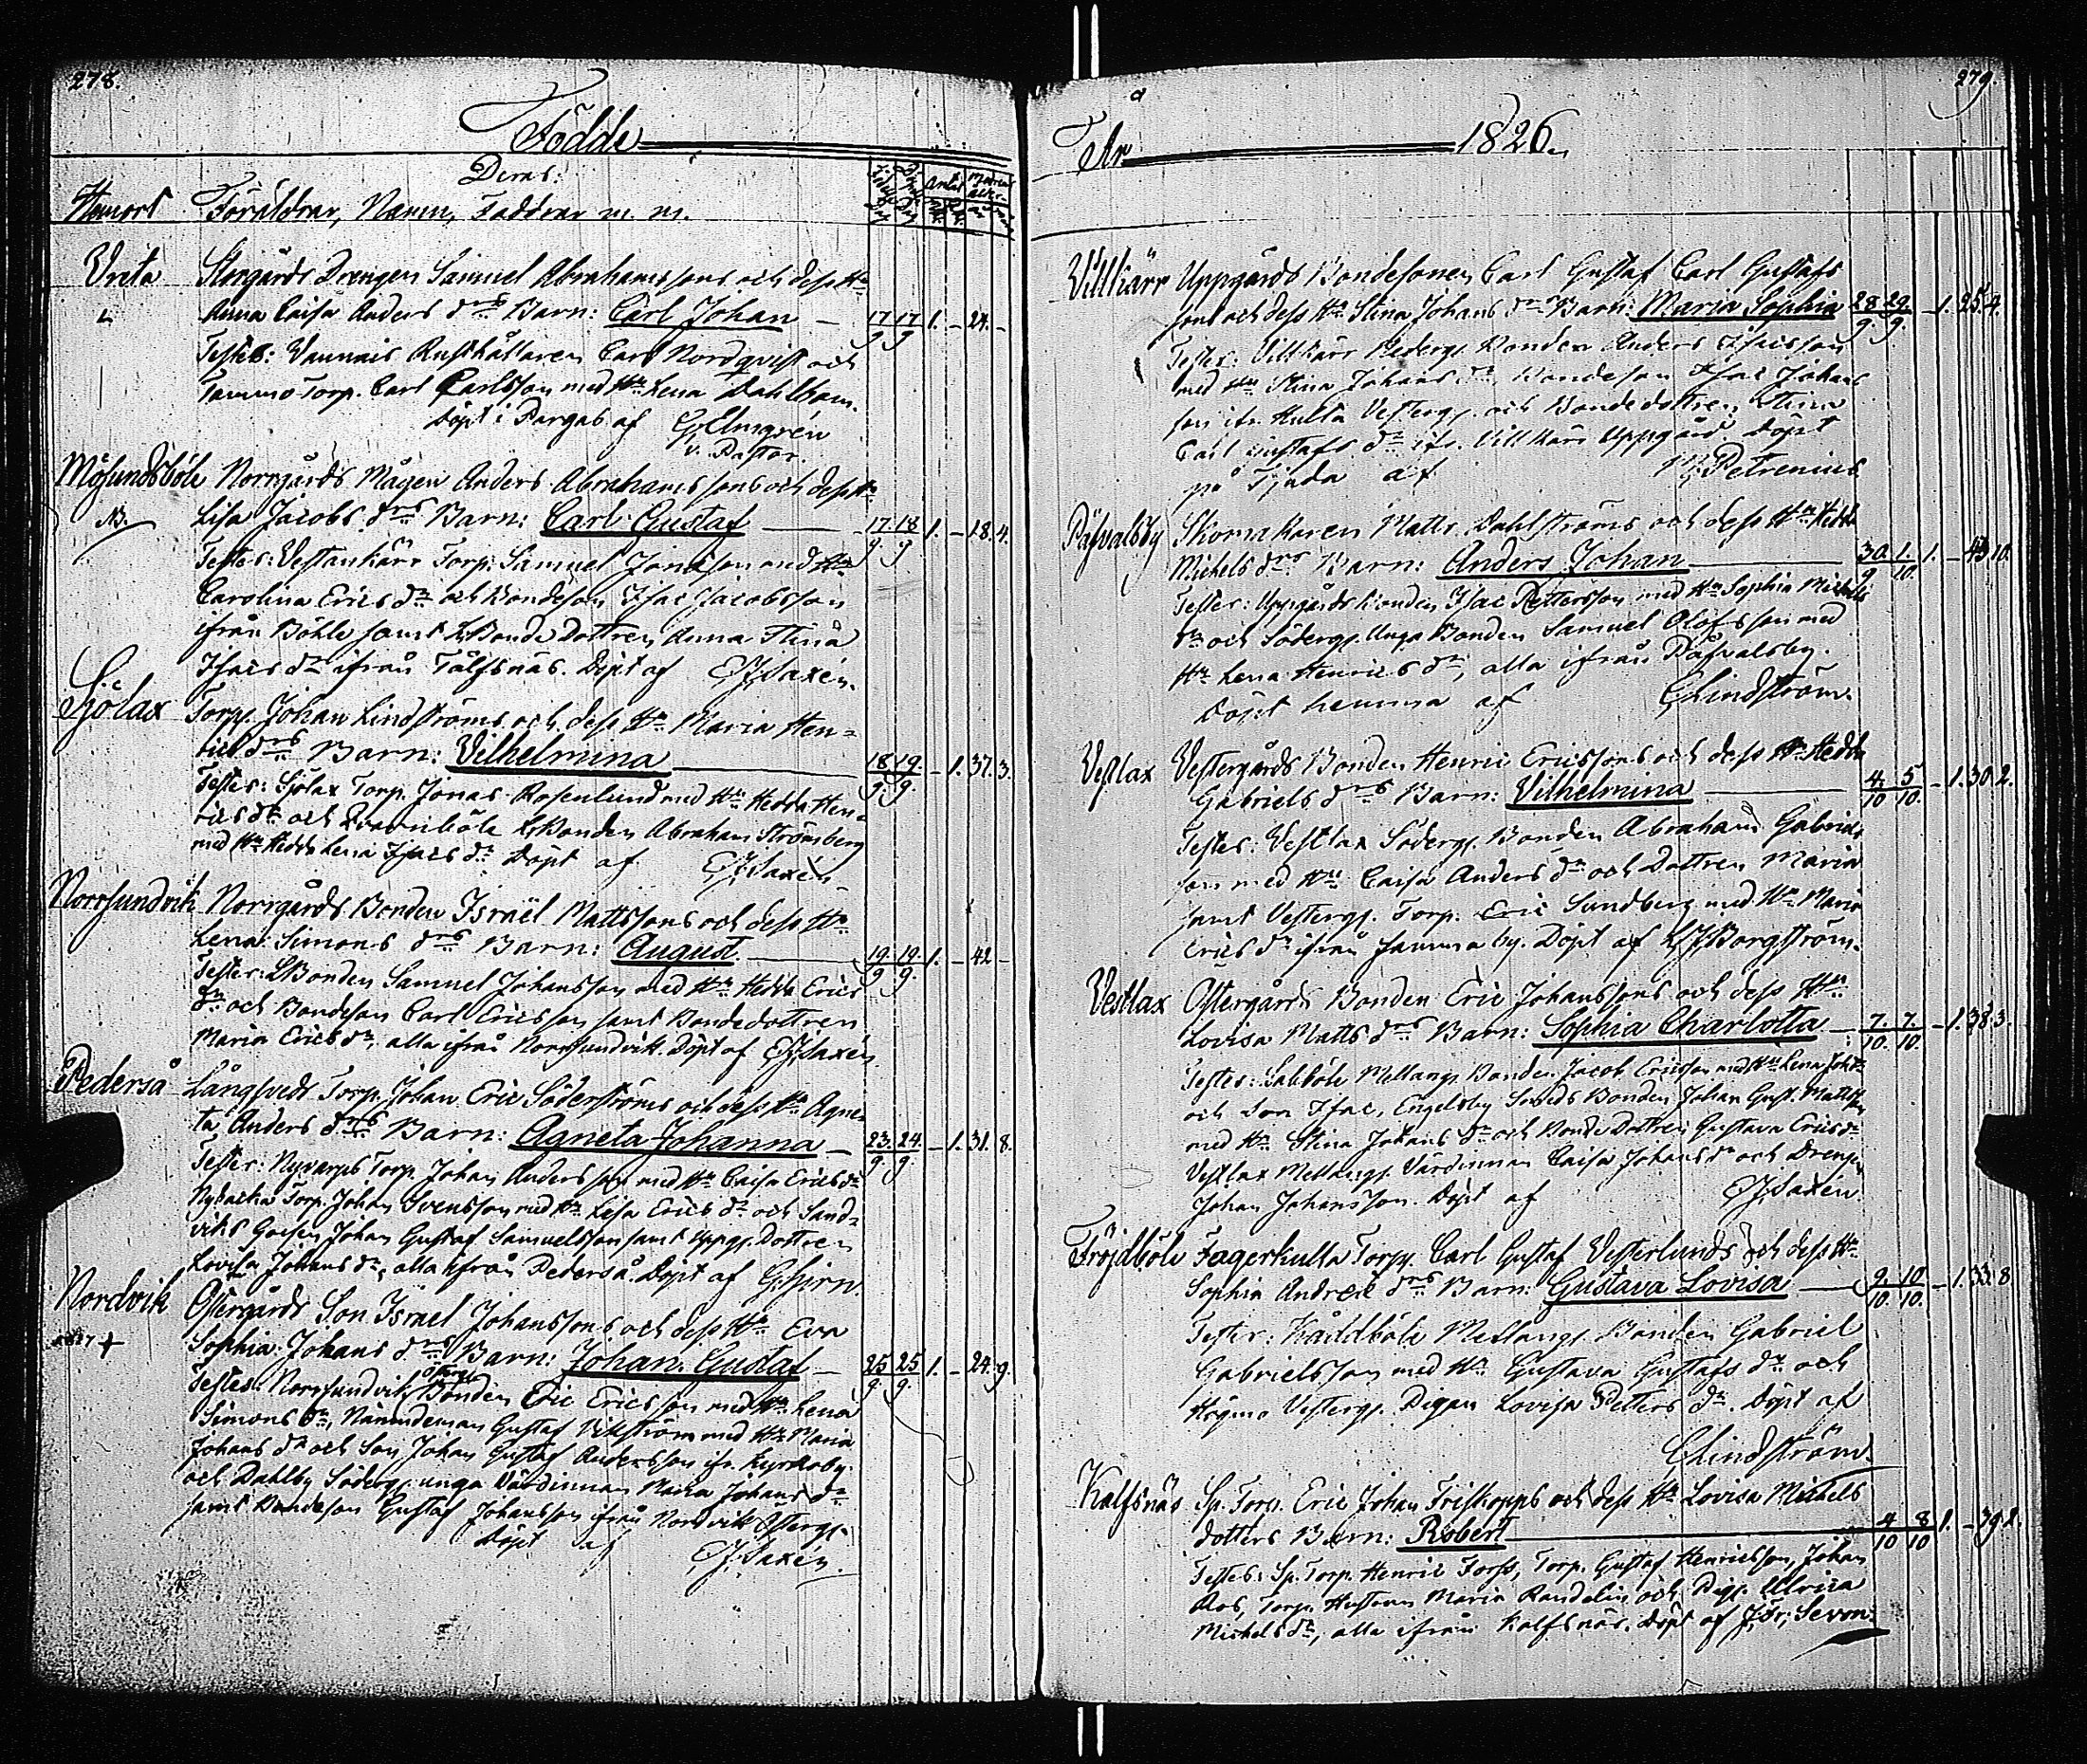 278.
Födde
Deras:
Hemort Föräldrar, Namn, Faddrar m. m.
Vreta Storgårds Drengen Samuel Abrahamssons och dess Hu
Anna Caisa Anders drs Barn: Carl Johan — 17/9 17/9 1. – 24. –
Testes: Vannais Rusthållaren Carl Nordqvist och
Tammo Torp. Carl Carlsson med Hu Lena Dahlbom.
Döpt i Pargas af G. Elmgrén
v. Pastor.
Mösundsböle Norrgårds Mågen Anders Abrahamssons och dess Hu
NB. Lisa Jacobs drs Barn: Carl Gustaf — 17/9 18/9 1. – 18. 4.
Testes: Vestankärr Torp. Samuel Jonasson med Hu
Carolina Erics dr och Bondeson Isac Jacobsson
ifrån Böhle samt LBonde Dottren Anna Stina
Isacs dr ifrån Tälfsnäs. Döpt af CJSaxén.
Sjölax Torp. Johan Lindströms och dess Hu Maria Hen=
rics drs Barn: Vilhelmina — 18/9 19/9 – 1. 37. 3.
Testes: Sjölax Torp. Jonas Rosenlund med Hu Hedda Hen=
rics dr och Qvarnböle LBonden Abraham Strömberg
med Hu Hedda Lena Isacs dr Döpt af CJSaxén
Norrsundvik Norrgårds Bonden Israël Mattssons och dess Hu
Lena Simons drs Barn: August — 19/9 19/9 1. – 42 –
Testes: LBonden Samuel Johansson med Hu Hedda Erics
dr och Bondeson Carl Ericsson samt Bondedottren
Maria Erics dr, alla ifrån Norrsundvik. Döpt af CJSaxén
Pederså Långsveds Torp. Johan Eric Söderströms och dess Hu Agne=
ta Anders drs Barn: Agneta Johanna — 23/9 24/9 – 1. 31. 8.
Testes: Nyvarps Torp. Johan Andersson med Hu Caisa Erics dr
Nybacka Torp. Johan Svensson med Hu Lisa Erics dr och Sand=
viks Johan Gustaf Samuelsson samt Uppg. Dottren
Lovisa Johans dr, alla ifrån Pederså. Döpt af G. Hjirn.
Nordvik Östergårds Son Israel Johanssons och dess Hu Eva
+ Sophia Johans drs Barn: Johan Gustaf — 25/9 25/9 1. – 24. 9.
Österg.
Testes: Norrsundvik Bonden Eric Ericsson med Hu Lena
Simons dr, Nämndeman Gustaf Vikström med Hu Maria
Johans dr och Son Johan Gustaf Andersson ifr. Kyrkoby
och Dahlby Söderg. unga Värdinnan Maria Johans dr
samt Bondeson Gustaf Johansson ifrån Nordvik Österg.
Döpt af CJSaxén.
279.
År 1826.
Villkärr Uppgårds Bondesonen Carl Gustaf Carl Gustafs
sons och dess Hu Stina Johans drs Barn: Maria Sophia 28/9 29/9 – 1. 25. 4.
Testes: Villkärr Nederg. Bonden Anders Isacsson
med Hu Stina Johans dr, Bondeson Isac Johans
son ifr. Hulta Vesterg. och Bondedottren Stina
Carl Gustafs dr ifr. Villkärr Uppgård Döpt
på Tjuda af Petrenius
Påfvalsby Skomakaren Matts Dahlströms och dess Hu Hedda
Michels drs Barn: Anders Johan — 30/9 1/10 1. – 43. 10.
Testes: Uppgårds Bonden Isac Pettersson med Hu Sophia Michels
dr och Söderg. Unga Bonden Samuel Olofsson med
Hu Lena Henrics dr, alla ifrån Påfvalsby.
Döpt hemma af CLindström.
Vestlax Vestergårds Bonden Henric Ericssons och dess Hu Hedda
Gabriels drs Barn: Vilhelmina — 4/10 5/10 – 1. 30. 2.
Testes: Vestlax Söderg. Bonden Abraham Gabriels
son med Hu Caisa Anders dr och Dottren Maria
samt Vesterg. Torp. Eric Sundberg med Hu Maria
Erics dr ifrån samma by. Döpt af LJBorgström.
Vestlax Östergårds Bonden Eric Johanssons och dess Hu
Lovisa Matts drs Barn: Sophia Charlotta — 7/10. 7/10. – 1. 38. 3.
Testes: Galtböle Mellang. Bonden Jacob Ericsson med Hu Lena Joh. dr
och Son Isac, Engelsby Smeds Bonden Johan Gust. Mattsson
med Hu Stina Johans dr och Bonde Dottren Gustava Erics dr
Vestlax Mellang. Värdinnan Caisa Johans dr och Drengen
Johan Johansson. Döpt af CJSaxén
Fröjdböle Fagerkulla Torp. Carl Gustaf Vesterlunds och dess Hu
Sophia Andreæ drs Barn: Gustava Lovisa — 9/10. 10/10. – 1. 33. 8
Testes: Kåddböle Mellang. Bonden Gabriel
Gabrielsson med Hu Gustava Gustafs dr och
Högmo Vesterg. Pigan Lovisa Petters dr. Döpt af
CLindström.
Kalfsnäs Sp. Torp. Eric Johan Friskopps och dess Hu Lovisa Michels
dotters Barn: Robert — 4/10 8/10 1. – 39. 2.
Testes: Sp. Torp. Henric Forss, Torp. Gustaf Henricsson, Johan
Ros, Torp. Hustrun Maria Randelin och Pig. Ulrica
Michels dr, alla ifrån Kalfsnäs. Döpt af J. Fr. Sevon.